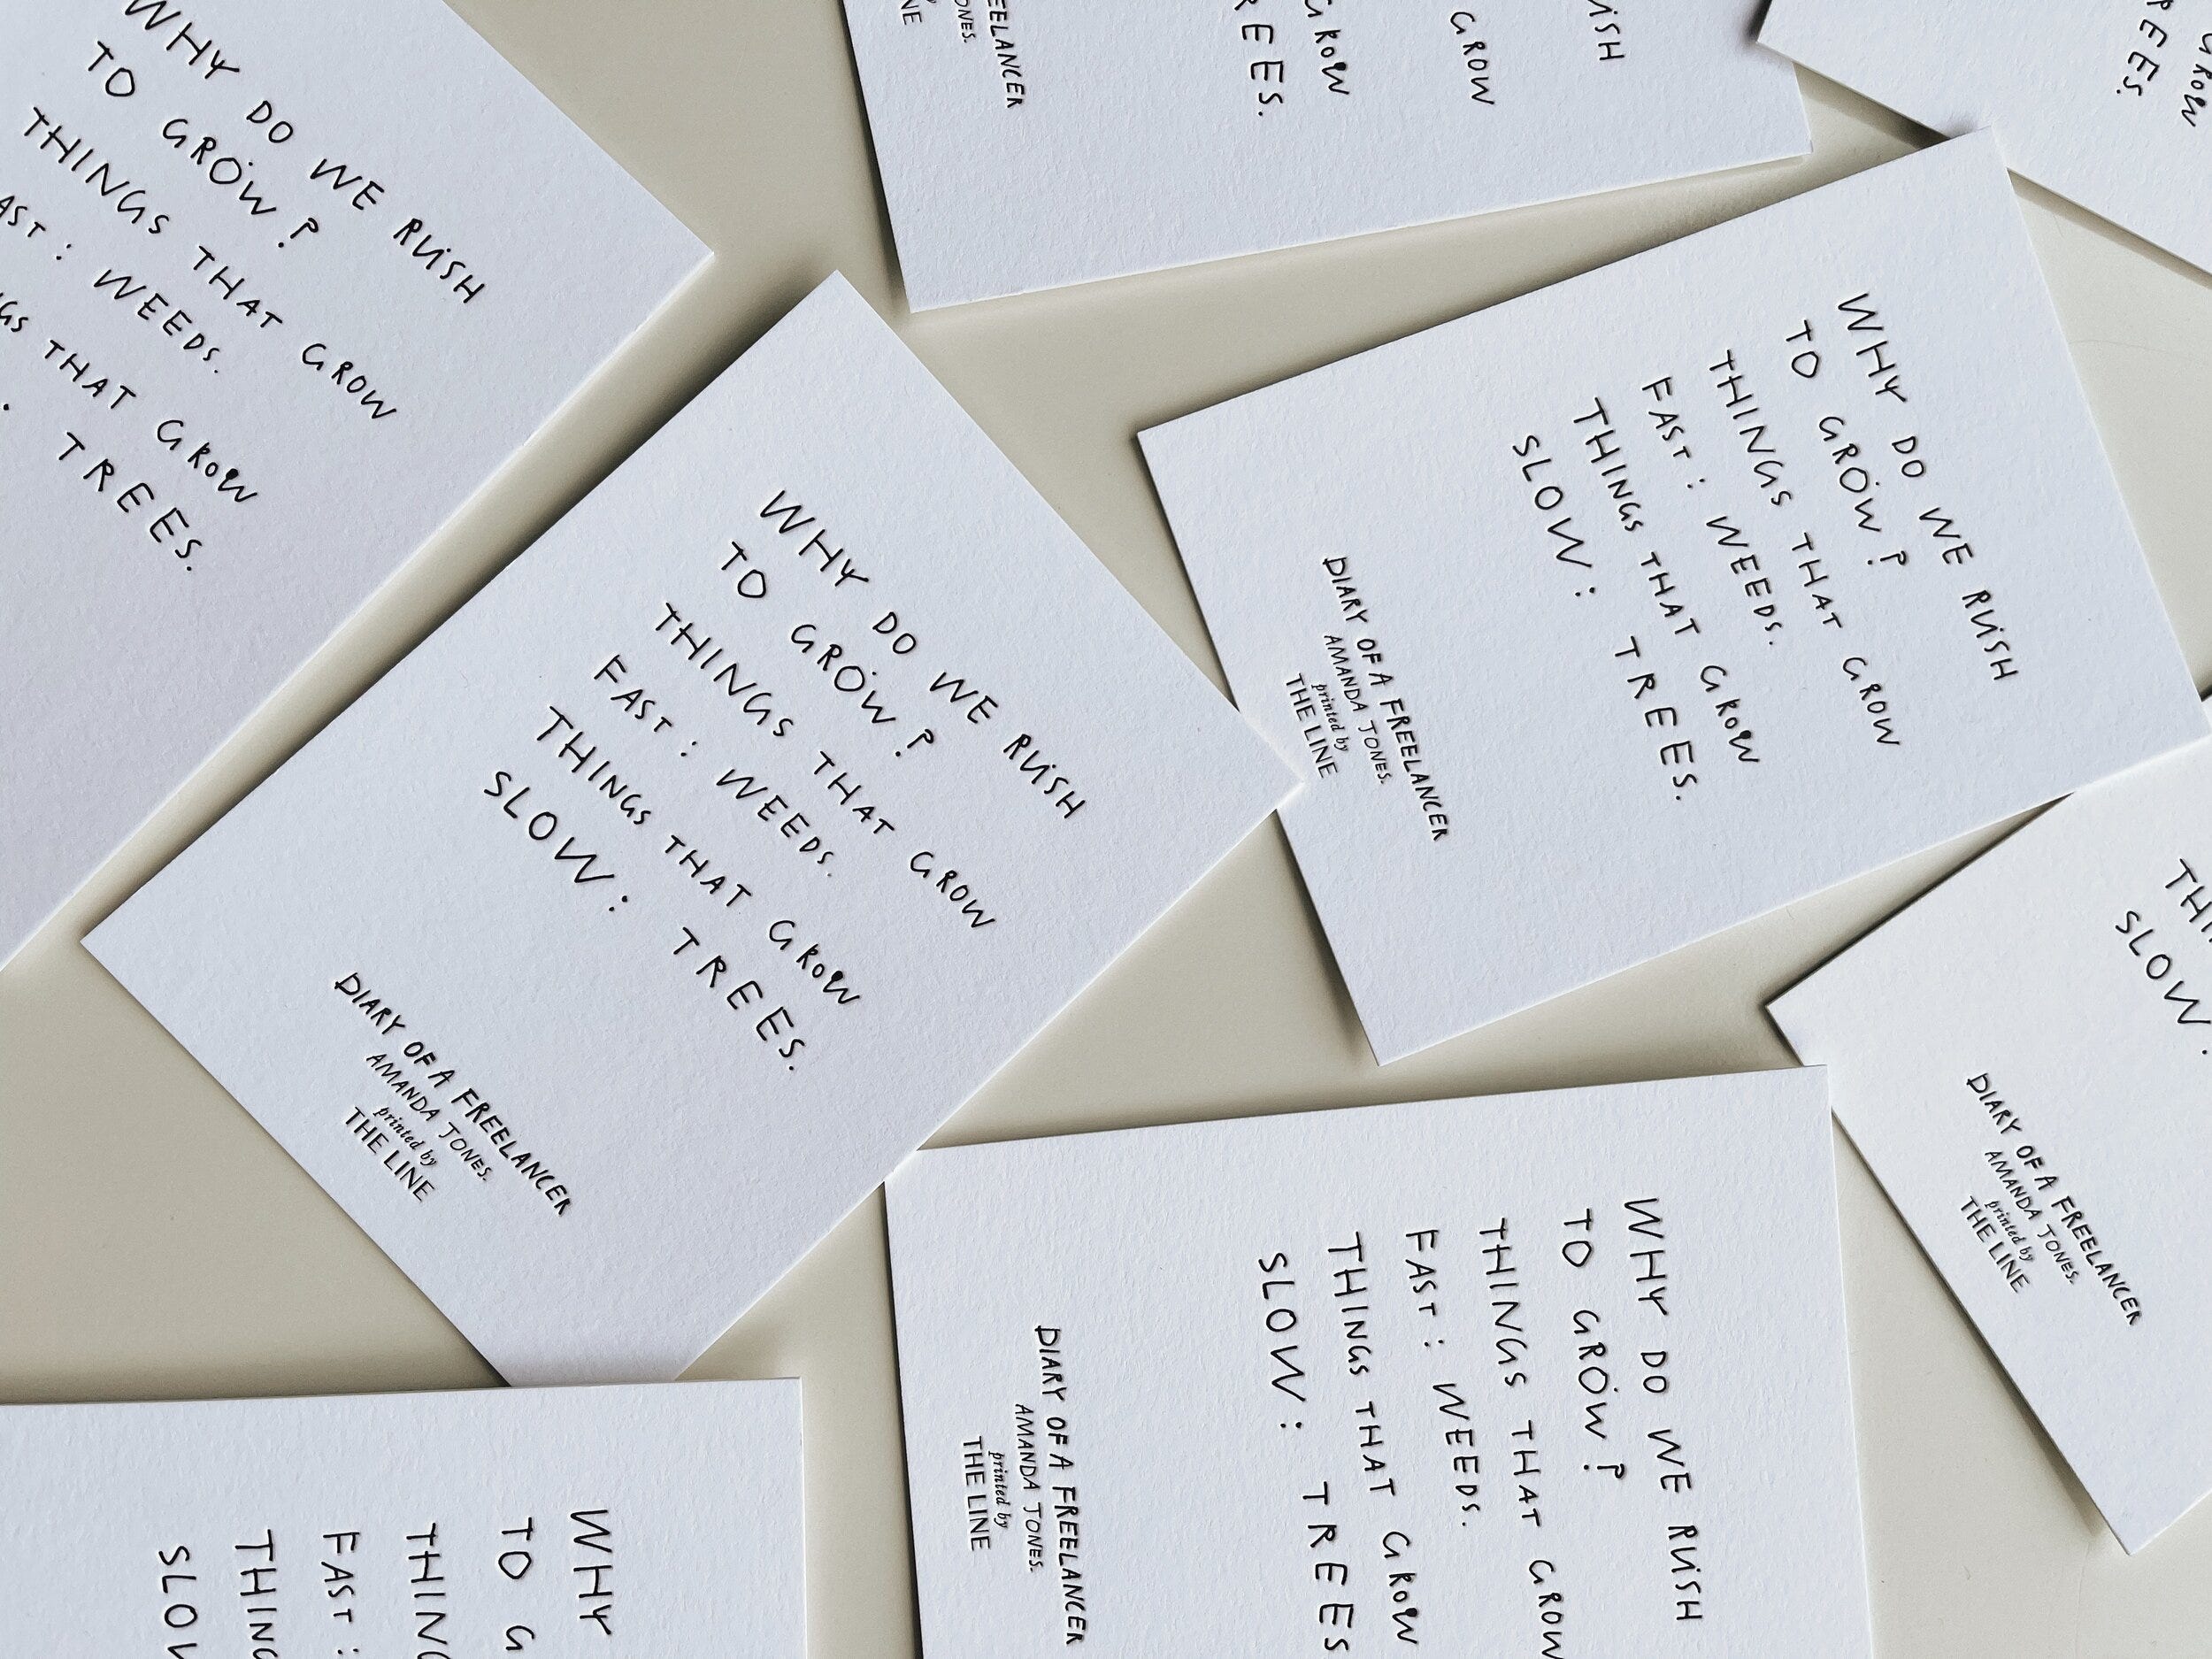 WHY DO WE RUSH
TO GROW?
THINGS THAT GROW
AST: WEEDS.
GS THAT GROW
TREES.
EELANCER
ONES.
NE
RUSH
GROW
GROW
REES.
GROW
REES.
WHY DO WE RUSH
TO GROW?
THINGS THAT GROW
FAST: WEEDS.
THINGS THAT GROW
SLOW: TREES.
DIARY OF A FREELANCER
AMANDA JONES.
printed by
THE LINE
WHY DO WE RUSH
TO GROW?
THINGS THAT GROW
FAST: WEEDS.
THINGS THAT GROW
SLOW: TREES.
DIARY OF A FREELANCER
AMANDA JONES.
printed by
THE LINE
THI
SLOW:
DIARY OF A FREELANCER
AMANDA JONES.
printed by
THE LINE
WHY DO WE RUSH
TO GROW?
THINGS THAT GROW
FAST: WEEDS.
THINGS THAT GROW
SLOW: TREES
DIARY OF A FREELANCER
AMANDA JONES.
printed by
THE LINE
WHY
TO G
THING
FAST:
THING
SLOW